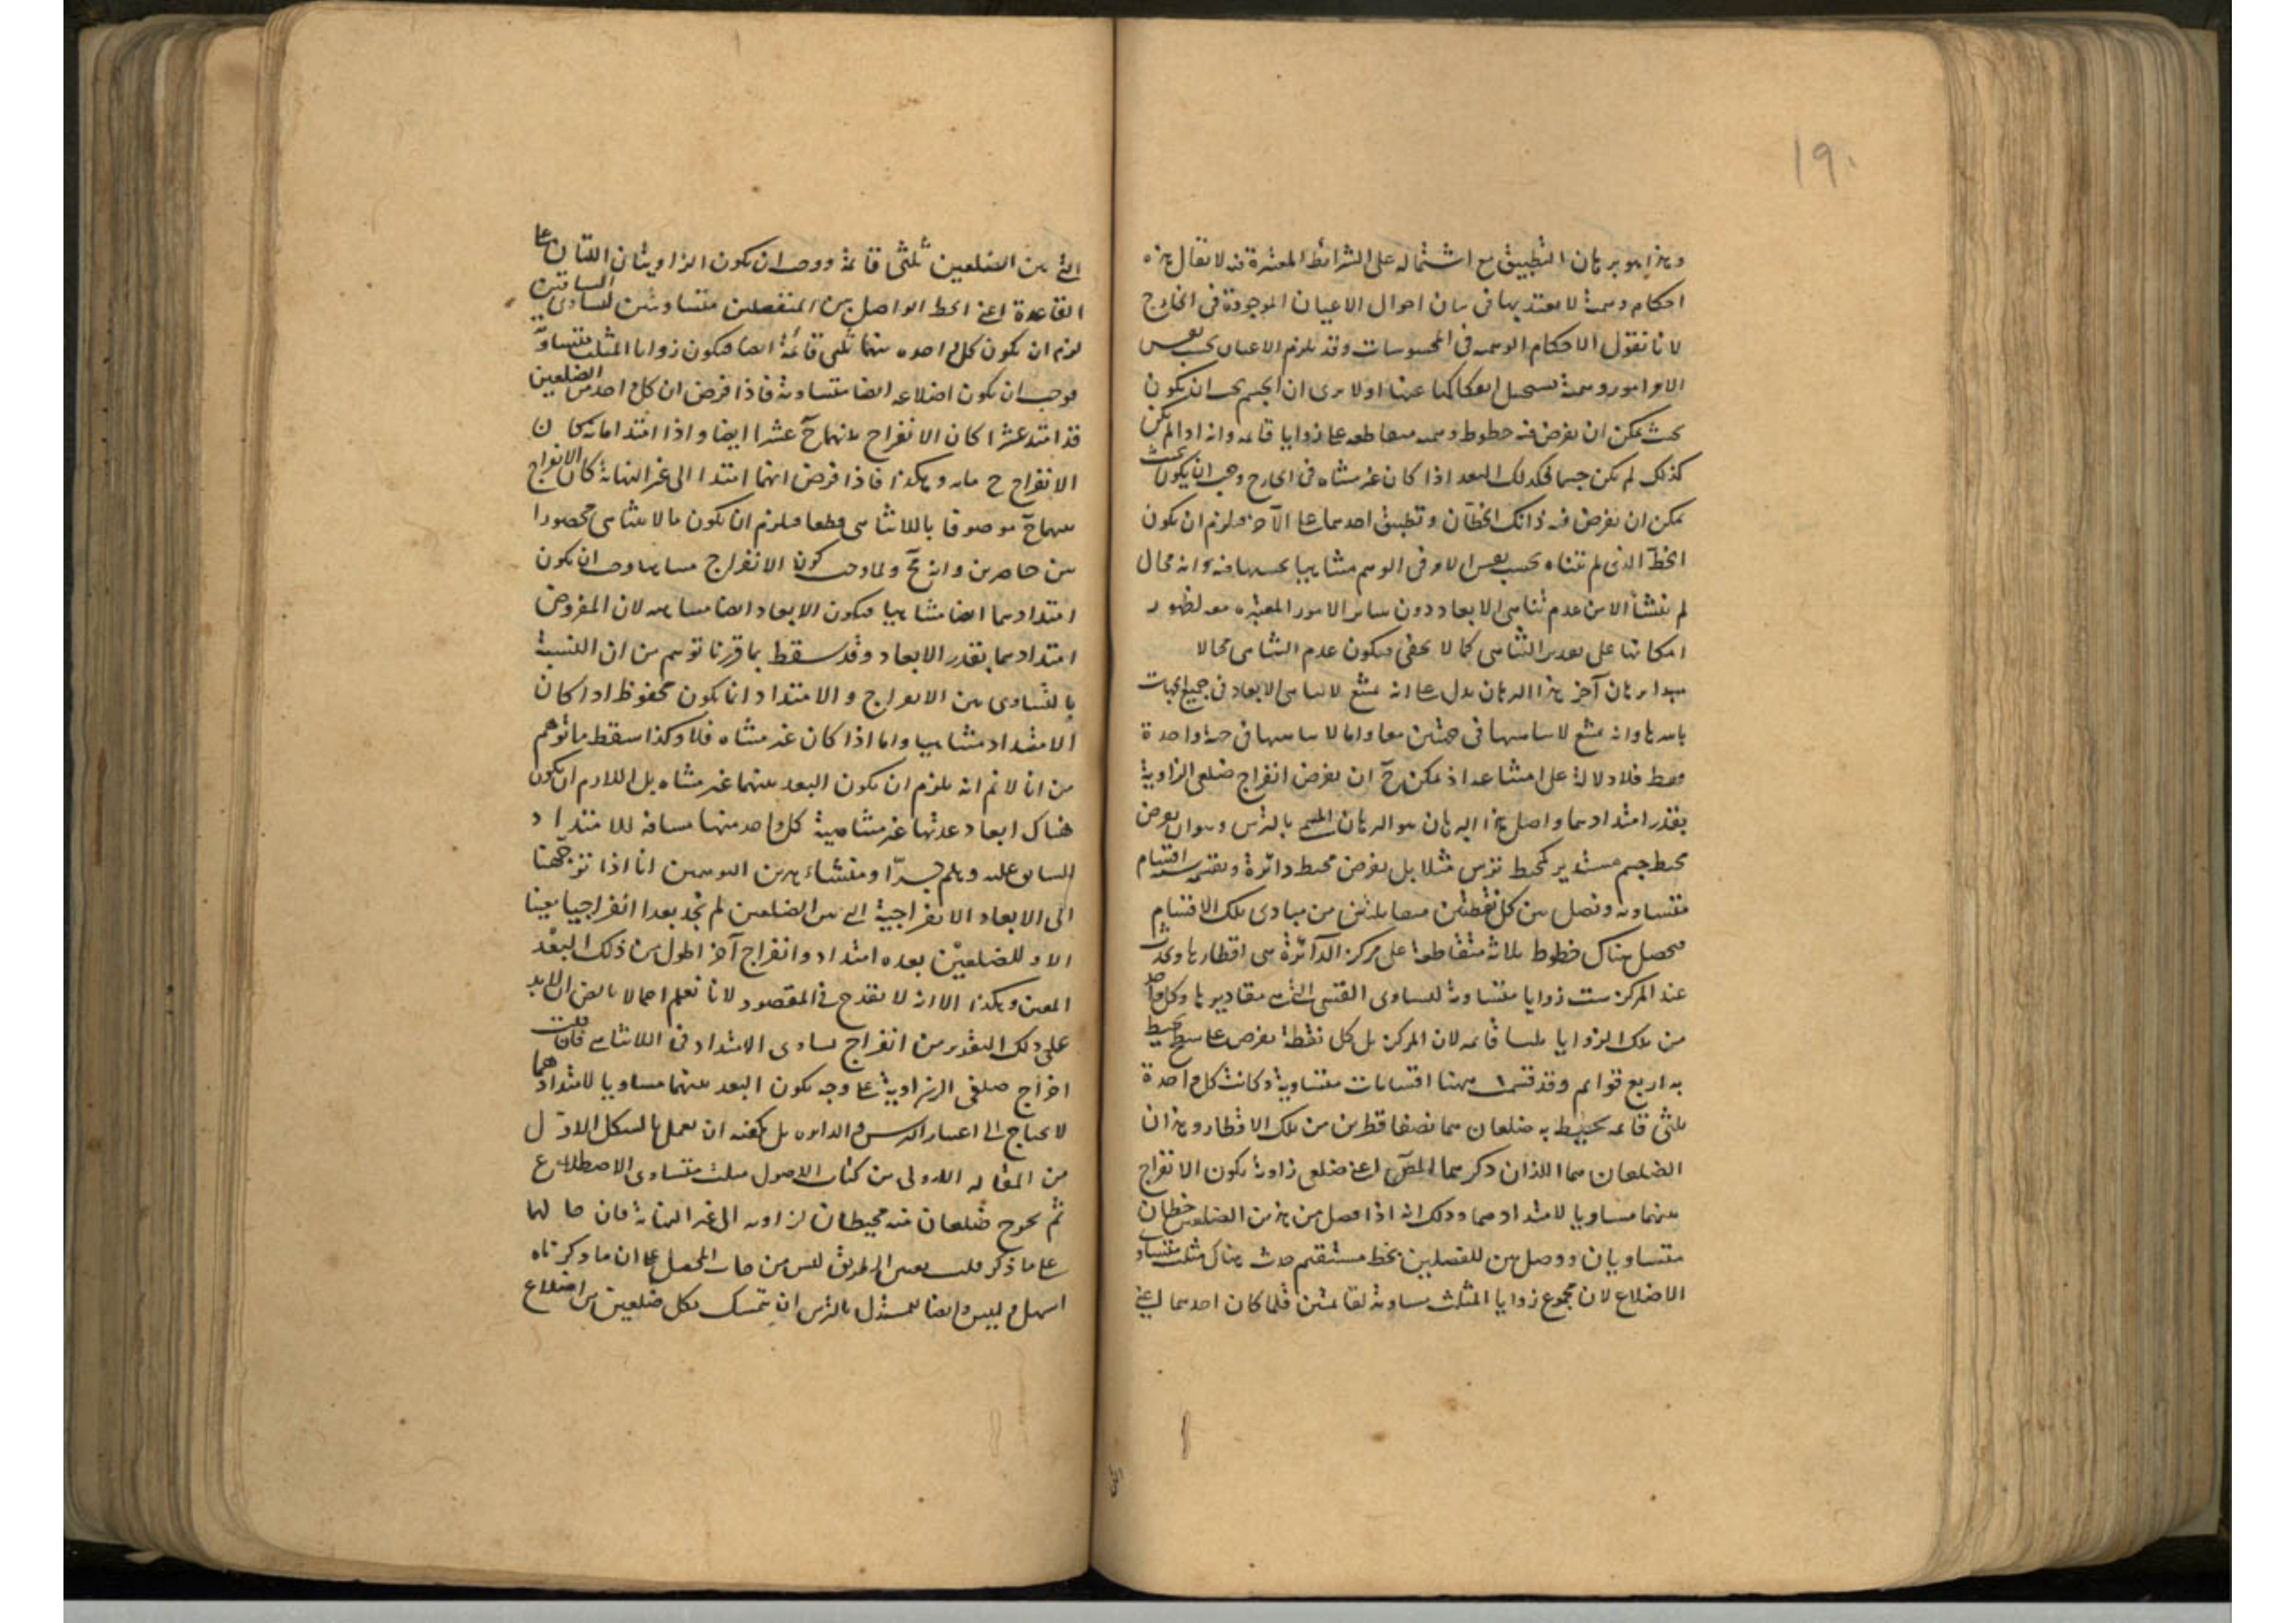 ١٩٠
وهذا هو برهان التطبيق مع اشتماله على الشرائط المعتبرة فيه لا يقال هذه
احكام وهمية لا يعتد بها في بيان احوال الاعيان الموجودة في الخارج
لانا نقول الاحكام الوهمية في المحسوسات وقد يلزم الاعيان بحسب نفس
الامر امور وهمية يستحيل انفكاكها عنها اولا يرى ان الجسم يجب ان يكون
بحيث يمكن ان يفرض فيه خطوط وهمية متقاطعة على زوايا قائمة وانه اذا لم يكن
كذلك لم يكن جسما فكذلك البعد اذا كان غير متناه في الخارج وجب ان يكون بحيث
يمكن ان يفرض فيه ذانك الخطان وتطبيق احدهما على الآخر فيلزم ان يكون
الخط الذي لم يتناه بحسب نفس الامر في الوهم متناهيا بحسبها فيه وانه محال
لم ينشأ الا من عدم تناهي الابعاد دون سائر الامور المعتبرة معه لظهور
امكانها على تقدير التناهي كما لا يخفى فيكون عدم التناهي محالا
برهان آخر هذا البرهان يدل على انه يمتنع لا تناهي الابعاد في جميع الجهات
باسرها وانه يمتنع لا تناهيها في جهتين معا واما لا تناهيها في جهة واحدة
فقط فلا دلالة على امتناعه اذ يمكن ح ان يفرض انفراج ضلعي الزاوية
بقدر امتدادهما واصل هذا البرهان هو البرهان المسمى بالترس وهو ان يفرض
محيط جسم مستدير كمحيط ترس مثلا بل يفرض محيط دائرة ونقسمه ستة اقسام
متساوية ونصل بين كل نقطتين متقابلتين من مبادي تلك الاقسام
فيحصل هناك خطوط ثلاثة متقاطعة على مركز الدائرة هي اقطارها ويحدث
عند المركز ست زوايا متساوية لتساوي القسي التي هي مقاديرها وكل واحد
من تلك الزوايا ثلثا قائمة لان المركز بل كل نقطة تفرض على سطح يحيط
به اربع قوائم وقد قسمت ههنا اقسامات متساوية وكانت كل واحدة
ثلثي قائمة يحيط به ضلعان هما نصفا قطرين من تلك الاقطار وهذان
الضلعان هما اللذان ذكرهما المص اعني ضلعي زاوية يكون الانفراج
بينهما مساويا لامتدادهما وذلك انه اذا فصل من هذين الضلعين خطان
متساويان ووصل بين المفصلين بخط مستقيم حدث هناك مثلث متساوي
الاضلاع لان مجموع زوايا المثلث مساوية لقائمتين فلما كان احدهما اعني
التي بين الضلعين ثلثي قائمة ووجب ان يكون الزاويتان اللتان على
القاعدة اعني الخط الواصل بين المنفصلين متساويتين لتساوي الساقين
لزم ان يكون كل واحدة منهما ثلثي قائمة ايضا فيكون زوايا المثلث متساوية
فوجب ان يكون اضلاعه ايضا متساوية فاذا فرض ان كل واحد من الضلعين
قد امتد عشرا كان الانفراج بينهما ح عشرا ايضا واذا امتدا مائة كان
الانفراج ح مائة وهكذا فاذا فرض انهما امتدا الى غير النهاية كان الانفراج
بينهما ح موصوفا باللاتناهي قطعا فيلزم ان يكون ما لا يتناهى محصورا
بين حاصرين وانه مح ولما وجب كون الانفراج متناهيا وجب ان يكون
امتدادهما ايضا متناهيا فيكون الابعاد ايضا متناهية لان المفروض
امتدادهما بقدر الابعاد وقد سقط بما قررنا توهم من ان النسبة
بالتساوي بين الانفراج والامتداد انما يكون محفوظا اذا كان
الامتداد متناهيا واما اذا كان غير متناه فلا وكذا سقط ما توهم
من انا لا نم انه يلزم ان يكون البعد بينهما غير متناه بل اللازم ان يكون
هناك ابعاد عدتها غير متناهية كل واحد منها مسافة للامتداد
السابق عليه وهلم جرا ومنشاء هذين الوهمين انا اذا توجهنا
الى الابعاد الانفراجية التي بين الضلعين لم نجد بعدا انفراجيا معينا
الا وللضلعين بعده امتداد وانفراج آخر اطول من ذلك البعد
المعين وهكذا الا انه لا يقدح في المقصود لانا نعلم اجمالا ان لا بد
على ذلك التقدير من انفراج يساوي الامتداد في اللاتناهي فان قلت
اخراج ضلعي الزاوية على وجه يكون البعد بينهما مساويا لامتدادهما
لا يحتاج الى اعتبار الترس والدائرة بل يكفيه ان يعمل بالشكل الاول
من المقالة الاولى من كتاب الاصول مثلث متساوي الاضلاع
ثم يخرج ضلعان منه محيطان بزاوية الى غير النهاية فان حالهما
على ما ذكر قلت تعيين الطريق ليس من دأب المحصل على ان ما ذكرناه
اسهل وليس وايضا للمستدل بالترس ان يتمسك بكل ضلعين من اضلاع